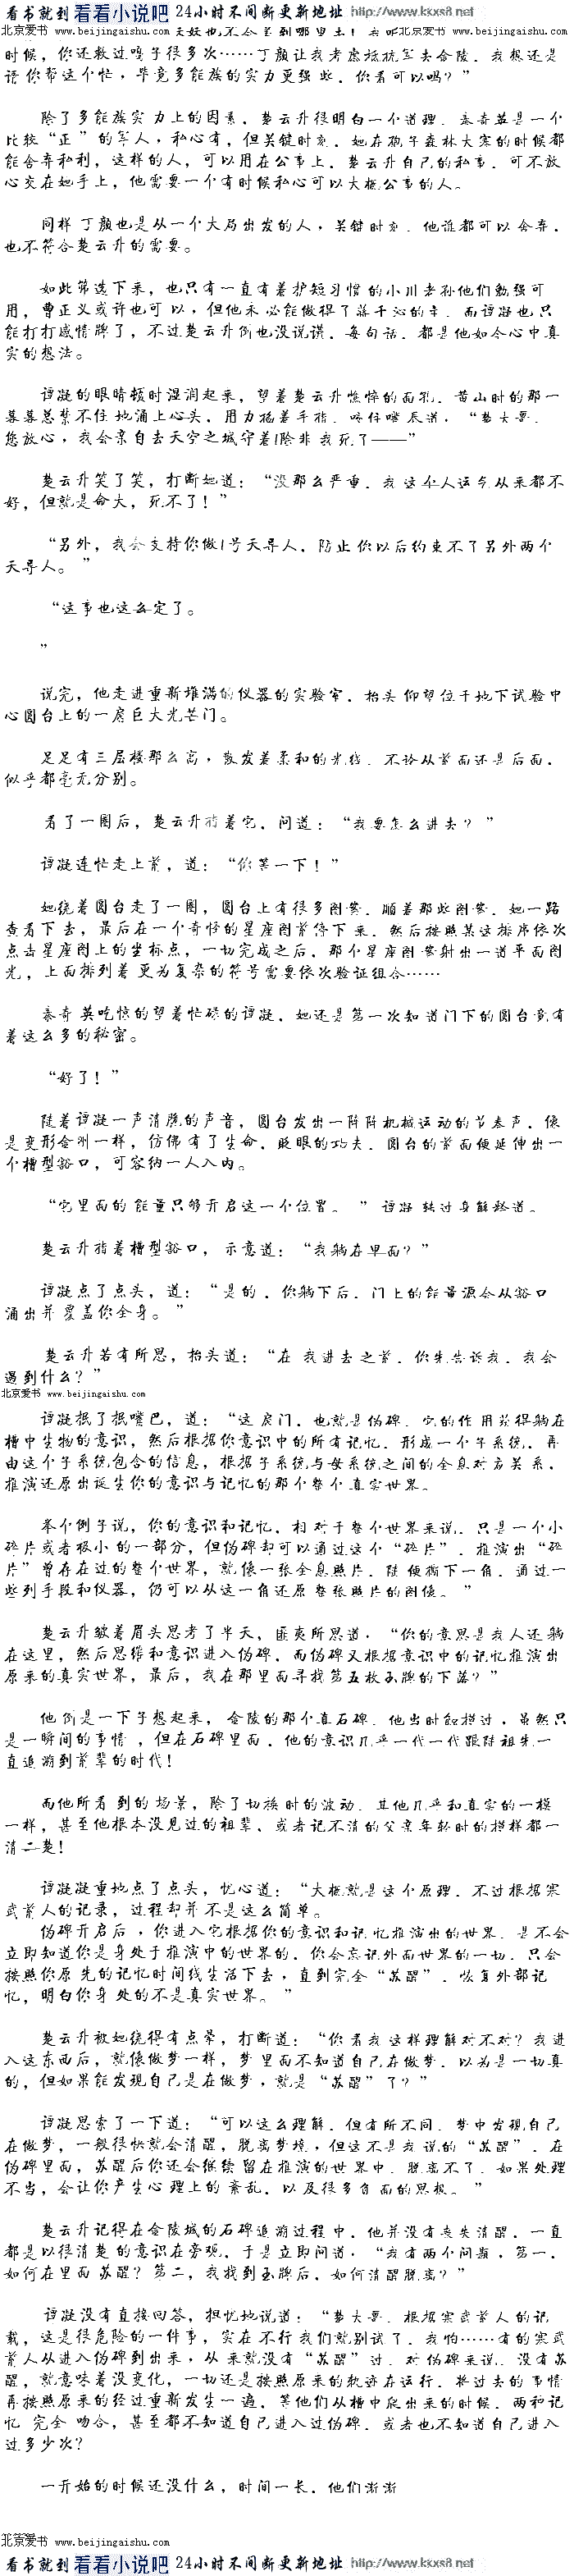 看书就到 看看小说吧 24小时不间断更新地址 http://www.kxs8.net
北京爱书 www.beijingaishu.com 北京爱书 www.beijingaishu.com
时候，你还救过嗓子很多次……丁颜让我考虑抵抗军去合陵，我想还是
请你帮这个忙，毕竟多能族的实力更强些，你看可以吗？”
除了多能族实力上的因素，楚云升很明白一个道理，秦奇英是一个
比较“正”的军人，私心有，但关键时刻，她在孢子森林大寨的时候都
能舍弃私利，这样的人，可以用在公事上，楚云升自己的私事，可不放
心交在她手上，他需要一个有时候私心可以大概公事的人。
同样丁颜也是从一个大局出发的人，关键时刻，他谁都可以舍弃，
也不符合楚云升的需要。
如此筛选下来，也只有一直有着护短习惯的小川老孙他们勉强可
用，曹正义或许也可以，但他未必能做得了蒋千沁的主，而谭凝也只
能打打感情牌了，不过楚云升倒也没说谎，每句话，都是他如今心中真
实的想法。
谭凝的眼睛顿时湿润起来，望着楚云升憔悴的面孔，黄山时的那一
幕幕总禁不住地涌上心头，用力捂着手指，咬住嘴唇道，“楚大哥，
您放心，我会亲自去天空之城守着!除非我死了——”
楚云升笑了笑，打断她道：“没那么严重，我这个人运气从来都不
好，但就是命大，死不了！”
“另外，我会支持你做1号天导人，防止你以后约束不了另外两个
天导人。”
“这事也这么定了。
”
说完，他走进重新堆满的仪器的实验室，抬头仰望位于地下试验中
心圆台上的一扇巨大光芒门。
足足有三层楼那么高，散发着柔和的光线，不论从前面还是后面，
似乎都毫无分别。
看了一圈后，楚云升指着它，问道：“我要怎么进去？”
谭凝连忙走上前，道：“你等一下！”
她绕着圆台走了一圈，圆台上有很多图案，顺着那些图案，她一路
查看下去，最后在一个奇怪的星座图前停下来，然后按照某这排序依次
点击星座图上的坐标点，一切完成之后，那个星座图案射出一道平面图
光，上面排列着更为复杂的符号需要依次验证组合……
秦奇英吃惊的望着忙碌的谭凝，她还是第一次知道门下的圆台竟有
着这么多的秘密。
“好了！”
随着谭凝一声清脆的声音，圆台发出一阵阵机械运动的节奏声，像
是变形金刚一样，仿佛有了生命，眨眼的功夫，圆台的前面便延伸出一
个槽型豁口，可容纳一人入内。
“它里面的能量只够开启这一个位置。”谭凝转过身解释道。
楚云升指着槽型豁口，示意道：“我躺在里面？”
谭凝点了点头，道：“是的，你躺下后，门上的能量源会从豁口
涌出并覆盖你全身。”
楚云升若有所思，抬头道：“在我进去之前，你先告诉我，我会
遇到什么？”
北京爱书 www.beijingaishu.com
谭凝抿了抿嘴巴，道：“这扇门，也就是伪碑，它的作用获得躺在
槽中生物的意识，然后根据你意识中的所有记忆，形成一个子系统，再
由这个子系统包含的信息，根据子系统与母系统之间的全息对应关系，
推演还原出诞生你的意识与记忆的那个整个真实世界。
举个例子说，你的意识和记忆，相对于整个世界来说，只是一个小
碎片或者极小的一部分，但伪碑却可以通过这个“碎片”，推演出“碎
片”曾存在过的整个世界，就像一张全息照片，随便撕下一角，通过一
些列手段和仪器，仍可以从这一角还原整张照片的图像。”
楚云升皱着眉头思考了半天，匪夷所思道，“你的意思是我人还躺
在这里，然后思维和意识进入伪碑，而伪碑又根据意识中的记忆推演出
原来的真实世界，最后，我在那里面寻找第五枚玉牌的下落？”
他倒是一下子想起来，金陵的那个真石碑，他当时触摸过，虽然只
是一瞬间的事情，但在石碑里面，他的意识几乎一代一代跟随祖先一
直追溯到前辈的时代！
而他所看到的场景，除了切换时的波动，其他几乎和真实的一模
一样，甚至他根本没见过的祖辈，或者记不清的父亲年轻时的模样都一
清二楚！
谭凝凝重地点了点头，忧心道：“大概就是这个原理，不过根据寒
武前人的记录，过程却并不是这么简单。
伪碑开启后，你进入它根据你的意识和记忆推演出的世界，是不会
立即知道你是身处于推演中的世界的，你会忘记外面世界的一切，只会
按照你原先的记忆时间线生活下去，直到完全“苏醒”，恢复外部记
忆，明白你身处的不是真实世界。”
楚云升被她绕得有点晕，打断道：“你看我这样理解对不对？我进
入这东西后，就像做梦一样，梦里面不知道自己在做梦，以为是一切真
的，但如果能发现自己是在做梦，就是“苏醒”了？”
谭凝思索了一下道：“可以这么理解，但有所不同，梦中发现自己
在做梦，一般很快就会清醒，脱离梦境，但这不是我说的“苏醒”，在
伪碑里面，苏醒后你还会继续留在推演的世界中，脱离不了，如果处理
不当，会让你产生心理上的紊乱，以及很多负面的思极。”
楚云升记得在金陵城的石碑追溯过程中，他并没有丧失清醒，一直
都是以很清楚的意识在旁观，于是立即问道，“我有两个问题，第一，
如何在里面苏醒？第二，我找到玉牌后，如何清醒脱离？”
谭凝没有直接回答，担忧地说道：“楚大哥，根据寒武前人的记
载，这是很危险的一件事，实在不行我们就别试了，我怕……有的寒武
前人从进入伪碑到出来，从来就没有“苏醒”过，对伪碑来说，没有苏
醒，就意味着没变化，一切还是按照原来的轨迹在运行，将过去的事情
再按照原来的经过重新发生一遍，等他们从槽中爬出来的时候，两种记
忆完全吻合，甚至都不知道自己进入过伪碑，或者也不知道自己进入
过多少次？
一开始的时候还没什么，时间一长，他们渐渐
北京爱书 www.beijingaishu.com
看书就到 看看小说吧 24小时不间断更新地址 http://www.kxs8.net